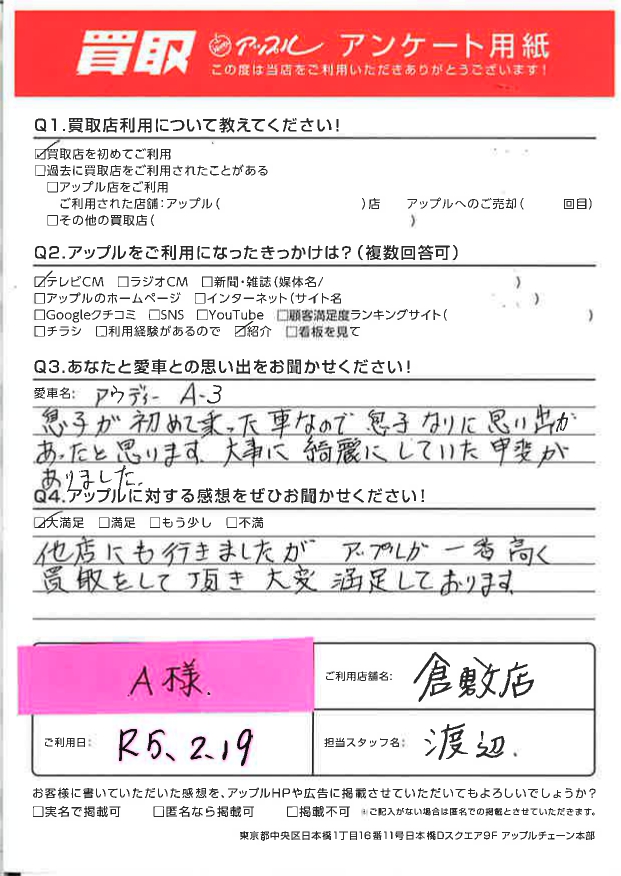 買取 アップル アンケート用紙
この度は当店をご利用いただきありがとうございます！
Q1.買取店利用について教えてください！
☑買取店を初めてご利用
□過去に買取店をご利用されたことがある
□アップル店をご利用
ご利用された店舗：アップル（ ）店 アップルへのご売却（ 回目）
□その他の買取店（ ）
Q2.アップルをご利用になったきっかけは？（複数回答可）
☑テレビCM □ラジオCM □新聞・雑誌（媒体名/ ）
□アップルのホームページ □インターネット（サイト名 ）
□Googleクチコミ □SNS □YouTube □顧客満足度ランキングサイト（ ）
□チラシ □利用経験があるので ☑紹介 □看板を見て
Q3.あなたと愛車との思い出をお聞かせください！
愛車名： アウディー A-3
息子が初めて乗った車なので息子なりに思い出が
あったと思います。大事に綺麗にしていた甲斐が
ありました。
Q4.アップルに対する感想をぜひお聞かせください！
☑大満足 □満足 □もう少し □不満
他店にも行きましたが アップルが一番高く
買取をして頂き大変満足しております。
A様.
ご利用店舗名： 倉敷店
ご利用日： R5、2.19
担当スタッフ名： 渡辺.
お客様に書いていただいた感想を、アップルHPや広告に掲載させていただいてもよろしいでしょうか？
□実名で掲載可 □匿名なら掲載可 □掲載不可 ※ご記入がない場合は匿名での掲載とさせていただきます。
東京都中央区日本橋1丁目16番11号日本橋Dスクエア9F アップルチェーン本部